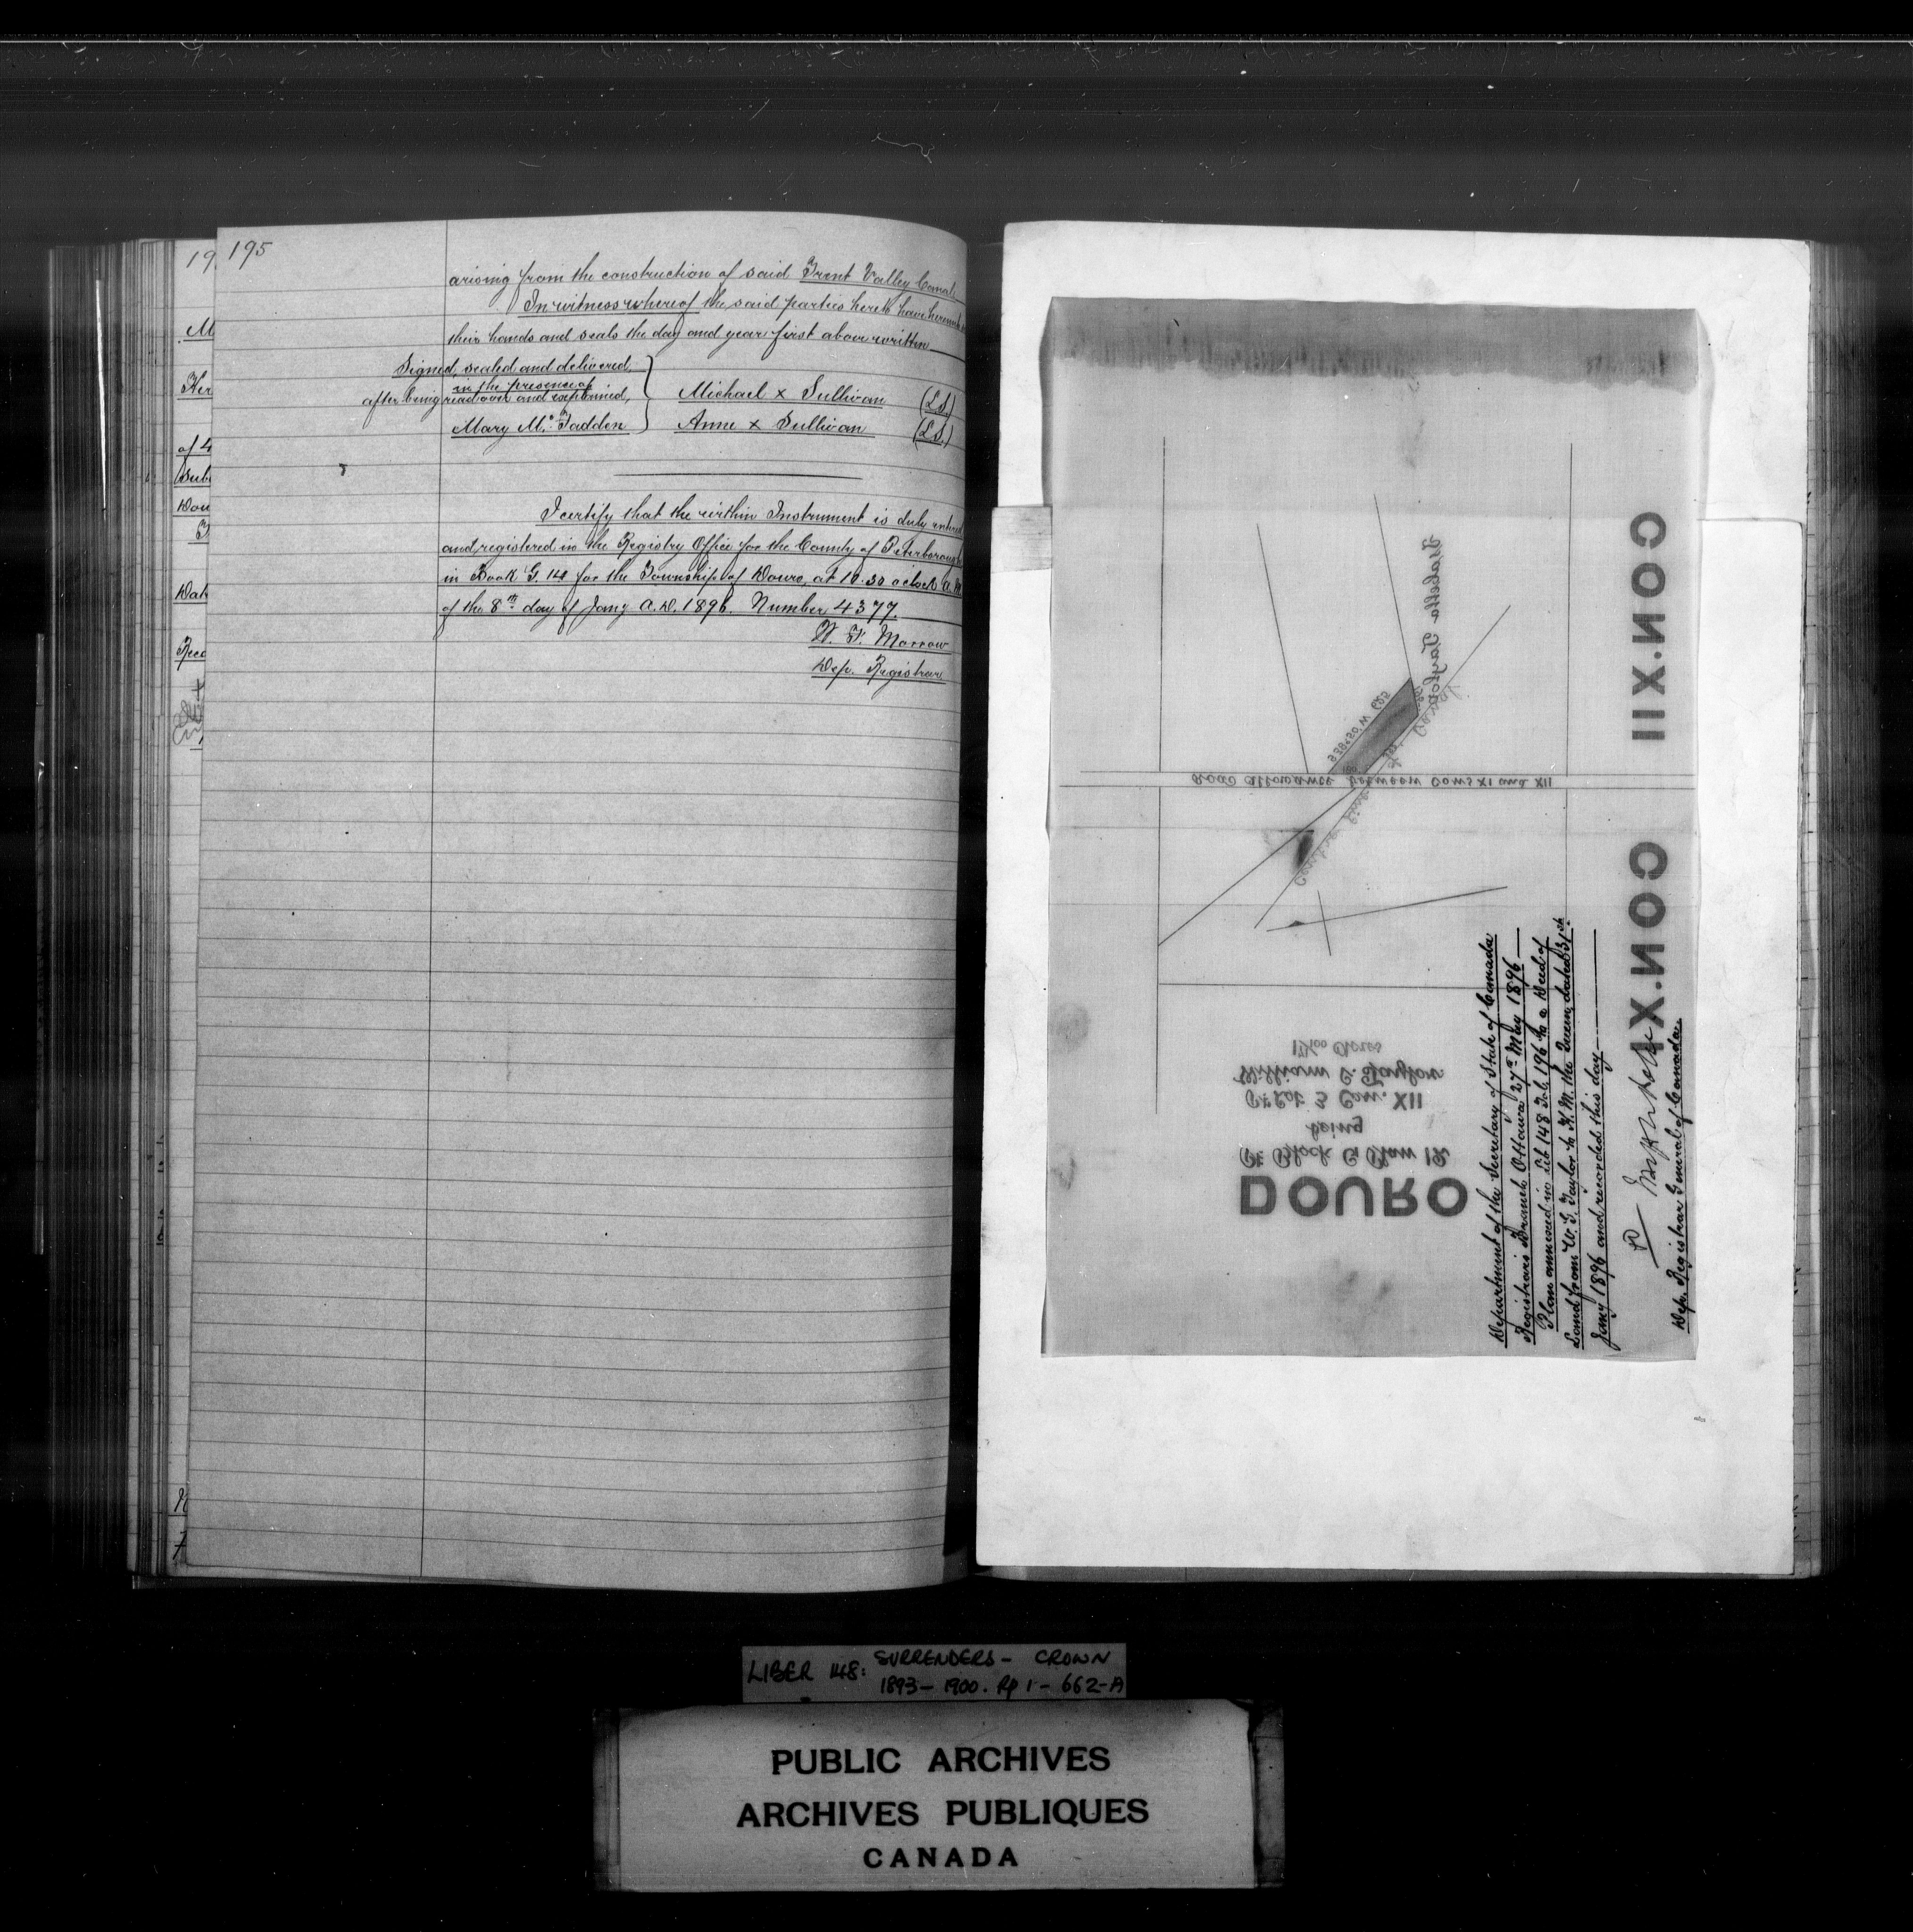 195
arising from the construction of said Trent Valley Canal
In witness whereof the said parties hereto have hereunto
their hands and seals the day and year first above written
Signed, sealed and delivered,
in the presence of
after being read over and explained,
Michael x Sullivan (L.S.)
Mary McFadden
Anne x Sullivan (L.S.)
I certify that the within Instrument is duly entered
and registered in the Registry Office for the County of Peterborough
in Book G. 14 for the Township of Douro, at 10.30 oclock A.M.
of the 8th day of Jany A.D. 1896. Number 4377.
Morrow
Dep. Registrar
19
M
Her
of 4
Sub
Dou
Dat
Reco
CON. XII
CON. XI
Isabella Taylor
S28°50'W 625
Road Allowance between Cons XI and XII
Centre Line
17/100 Acres
William G. Taylor
Pt Lot 3 Con. XII
being
Pt Block G Plan 12
DOURO
Department of the Secretary of State of Canada
Registrar's Branch Ottawa 27th May 1896
Plan annexed in Lib 148 Fol. 196 to a Deed of
Land from W. G. Taylor to H. M. the Queen, dated 31st
Jany 1896 and recorded this day
Dep. Registrar General of Canada.
LIBER 148: SURRENDERS - CROWN
1893-1900. Pp 1-662-A
PUBLIC ARCHIVES
ARCHIVES PUBLIQUES
CANADA